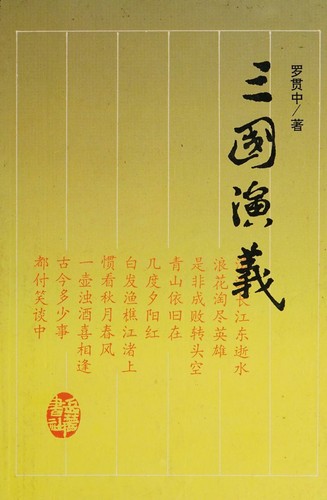 罗贯中/著
三國演義
长江东逝水
浪花淘尽英雄
是非成败转头空
青山依旧在
几度夕阳红
白发渔樵江渚上
惯看秋月春风
一壶浊酒喜相逢
古今多少事
都付笑谈中
岳麓
書社